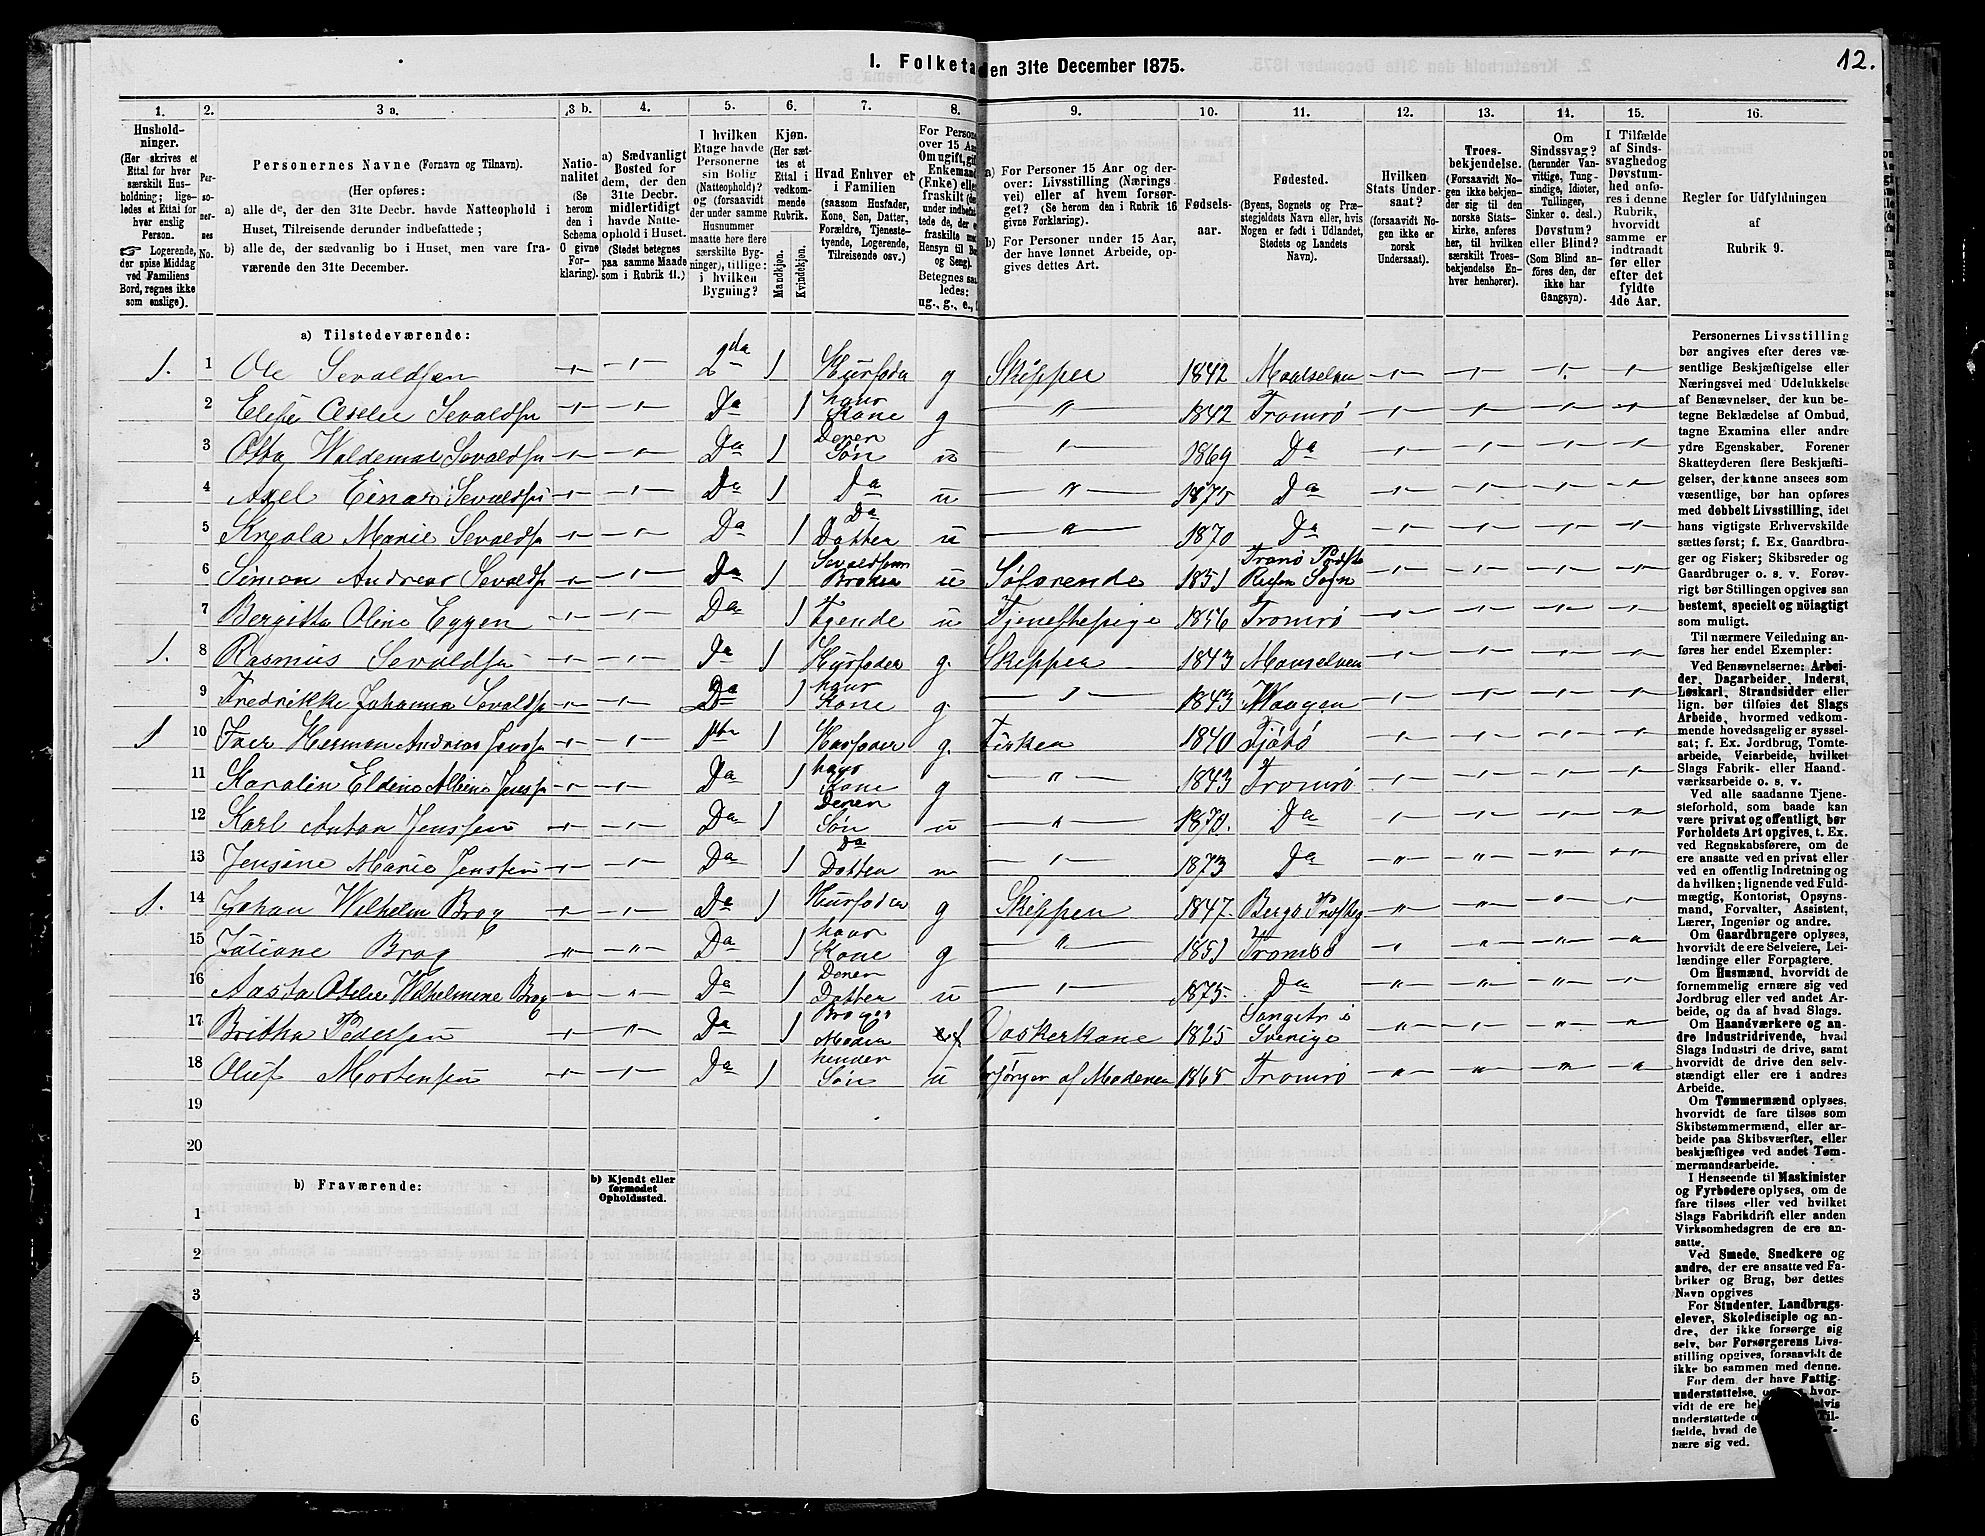 12.
1. Folketa
en 31te December 1875.
1.
2.
3 a.
3 b.
4.
5.
6.
7.
8.
9.
10.
11.
12.
13.
14.
15.
16.
Hushold-
ninger.
(Her skrives et
Ettal for hver
særskilt Hus-
holdning; lige-
ledes et Ettal for
hver enslig
Person.
☞ Logerende,
der spise Middag
ved Familiens
Bord, regnes ikke
som enslige).
Per-
so-
ner-
nes
No.
Personernes Navne (Fornavn og Tilnavn).
(Her opføres:
a) alle de, der den 31te Decbr. havde Natteophold i
Huset, Tilreisende derunder indbefattede;
b) alle de, der sædvanlig bo i Huset, men vare fra-
værende den 31te December.
Natio-
nalitet
(Se
herom
den i
Schema
O givne
For-
klaring).
a) Sædvanligt
Bosted for
dem, der den
31te Decbr.
midlertidigt
havde Natte-
ophold i Huset.
(Stedet betegnes
paa samme Maade
som i Rubrik 11.)
I hvilken
Etage havde
Personerne
sin Bolig
(Natteophold)?
og (forsaavidt
der under samme
Husnummer
maatte høre flere
særskilte Byg-
ninger), tillige:
i hvilken
Bygning?
Kjøn.
(Her sæt-
tes et
Ettal i
vedkom-
mende
Rubrik.
Mandkjøn.
Kvindekjøn.
Hvad Enhver er
i Familien
(saasom Husfader,
Kone, Søn, Datter,
Forældre, Tjeneste-
tyende, Logerende,
Tilreisende osv.)
For Persone
over 15 Aar
Om ugift, gif
Enkemand
(Enke) elle
fraskilt
Betegnes saa
ledes:
ug., g., e.,
a) For Personer 15 Aar og der-
over: Livsstilling (Nærings-
vei) eller af hvem forsør-
get? (Se herom den i Rubrik 16
givne Forklaring).
b) For Personer under 15 Aar,
der have lønnet Arbeide, op-
gives dettes Art.
Fødsels-
aar.
Fødested.
(Byens, Sognets og Præ-
stegjeldets Navn eller, hvis
Nogen er født i Udlandet,
Stedets og Landets
Navn).
Hvilken
Stats Under-
saat?
(forsaavidt No-
gen ikke er
norsk
Undersaat).
Troes-
bekjendelse.
(Forsaavidt No-
gen ikke bekjen-
der sig til den
norske Stats-
kirke, anføres
her, til hvilken
særskilt Troes-
bekjendelse En-
hver henhører).
Om
Sindssvag?
(herunder Van-
vittige, Tung-
sindige, Idioter,
Tullinger,
Sinker o. desl.)
Døvstum?
eller Blind?
(Som Blind an-
føres den, der
ikke har
Gangsyn).
I Tilfælde
af Sinds-
svaghedog
Døvstum-
hed anfø-
res i denne
Rubrik,
hvorvidt
samme er
indtraadt
før eller
efter det
fyldte
4de Aar.
Regler for Udfyldningen
af
Rubrik 9.
a) Tilstedeværende:
1. 1 Ole Sevaldsen 2da 1 Husfader g Skipper 1842 Maalselven
2 Da 1 hans Kone g 1842 Tromsø
3 Otto Waldemar Sevaldsen Da 1 Deres Søn u 1869 Da
4 Axel Einar Sevaldsen Da 1 Da u 1875 Da
5 Marie Sevaldsen Da 1 Da Datter u 1870 Da
6 Simon Andreas Sevaldsen Da 1 Sevaldsens Broder u Søfarende 1851 Tranø Sogn
7 Bergitta Oline Eggen Da 1 Tyende u Tjenestepige 1856 Tromsø
1. 8 Rasmus Sevaldsen Da 1 Husfader g. Skipper 1843 Maaselven
9 Fredrikke Johanna Sevaldsen Da 1 hans Kone g. 1843 Waagen
1 10 Herman Andreas 1ste 1 Husfader g. Fisker 1840 Tjøtø
11 Karolin Eldine Albine Da 1 hans Kone g 1843 Tromsø
12 Karl Anton Jenssen Da 1 Deres Søn u 1870. Da
13 Jensine Marie Jensen Da 1 Da Datter u 1873 Da
1. 14 Johan Wilhelm Brox Da 1 Husfader g Skipper 1847. Bergs
15 Tatiane Brox Da 1 hans Kone g 1851 Tromsø
16 Aasta Otelie Wilhelmene Brox Da 1 Deres Datter u 1875. Da
17 Britha Pedersen Da 1 Moder f Vaskerkone 1825 Sverige
18 Oluf Mortensen Da 1 hendes Søn u af Moderen 1865 Tromsø
19
20
b) Fraværende:
b) Kjendt eller
formodet
Opholdssted.
1
2
3
4
5
6
Personernes Livsstilling
bør angives efter deres væ-
sentlige Beskjæftigelse eller
Næringsvei med Udelukkelse
af Benævnelser, der kun be-
tegne Beklædelse af Ombud,
tagne Examina eller andre
ydre Egenskaber. Forener
Skatteyderen flere Beskjæfti-
gelser, der kunne ansees som
væsentlige, bør han opføres
med dobbelt Livsstilling, idet
hans vigtigste Erhvervskilde
sættes først; f. Ex. Gaardbru-
ger og Fisker; Skibsreder og
Gaardbruger o. s. v. Forøv-
rigt bør Stillingen opgives saa
bestemt, specielt og nöiagtigt
som muligt.
Til nærmere Veiledning an-
føres her endel Exempler:
Ved Benævnelserne: Arbei-
der, Dagarbeider, Inderst,
Løskarl, Strandsidder eller
lign. bør tilføies det Slags
Arbeide, hvormed vedkom-
mende hovedsagelig er syssel-
sat; f. Ex. Jordbrug, Tomte-
arbeide, Veiarbeide, hvilket
Slags Fabrik- eller Haand-
værksarbeide o. s. v.
Ved alle saadanne Tjene-
steforhold, som baade kan
være privat og offentligt, bør
Forholdets Art opgives, t. Ex.
ved Regnskabsførere, om de
ere ansatte ved en privat eller
ved en offentlig Indretning og
da hvilken; lignende ved Fuld-
mægtig, Kontorist, Opsyns-
mand, Forvalter, Assistent,
Lærer, Ingeniør og andre.
Om Gaardbrugere oplyses,
hvorvidt de ere Selveiere, Lei-
lændinge eller Forpagtere.
Om Husmænd, hvorvidt de
fornemmelig ernære sig ved
Jordbrug eller ved andet Ar-
beide, og da af hvad Slags.
Om Haandværkere og an-
dre Industridrivende, hvad
Slags Industri de drive, samt
hvorvidt de drive den selv-
stændigt eller ere i andres
Arbeide.
Om Tømmermænd oplyses,
hvorvidt de fare tilsøs som
Skibstømmermænd, eller ar-
beide paa Skibsværfter, eller
beskjæftiges ved andet Tøm-
mermandsarbeide.
I Henseende til Maskinister
og Fyrbødere oplyses, om de
fare tilsøs eller ved hvilket
Slags Fabrikdrift eller anden
Virksomhedsgren de ere an-
satte.
Ved Smede, Snedkere og
andre, der ere ansatte ved Fa-
briker og Brug, bør dettes
Navn opgives
For Studenter, Landbrugs-
elever, Skoledisciple og an-
dre, der ikke forsørge sig
selv, bør Forsørgerens Livs-
stilling opgives, forsaavidt de
ikke bo sammen med denne.
For dem, der have Fattig-
understøttelse,
vidt de ere
understøttede
fælde, hvad de
nære sig ved.